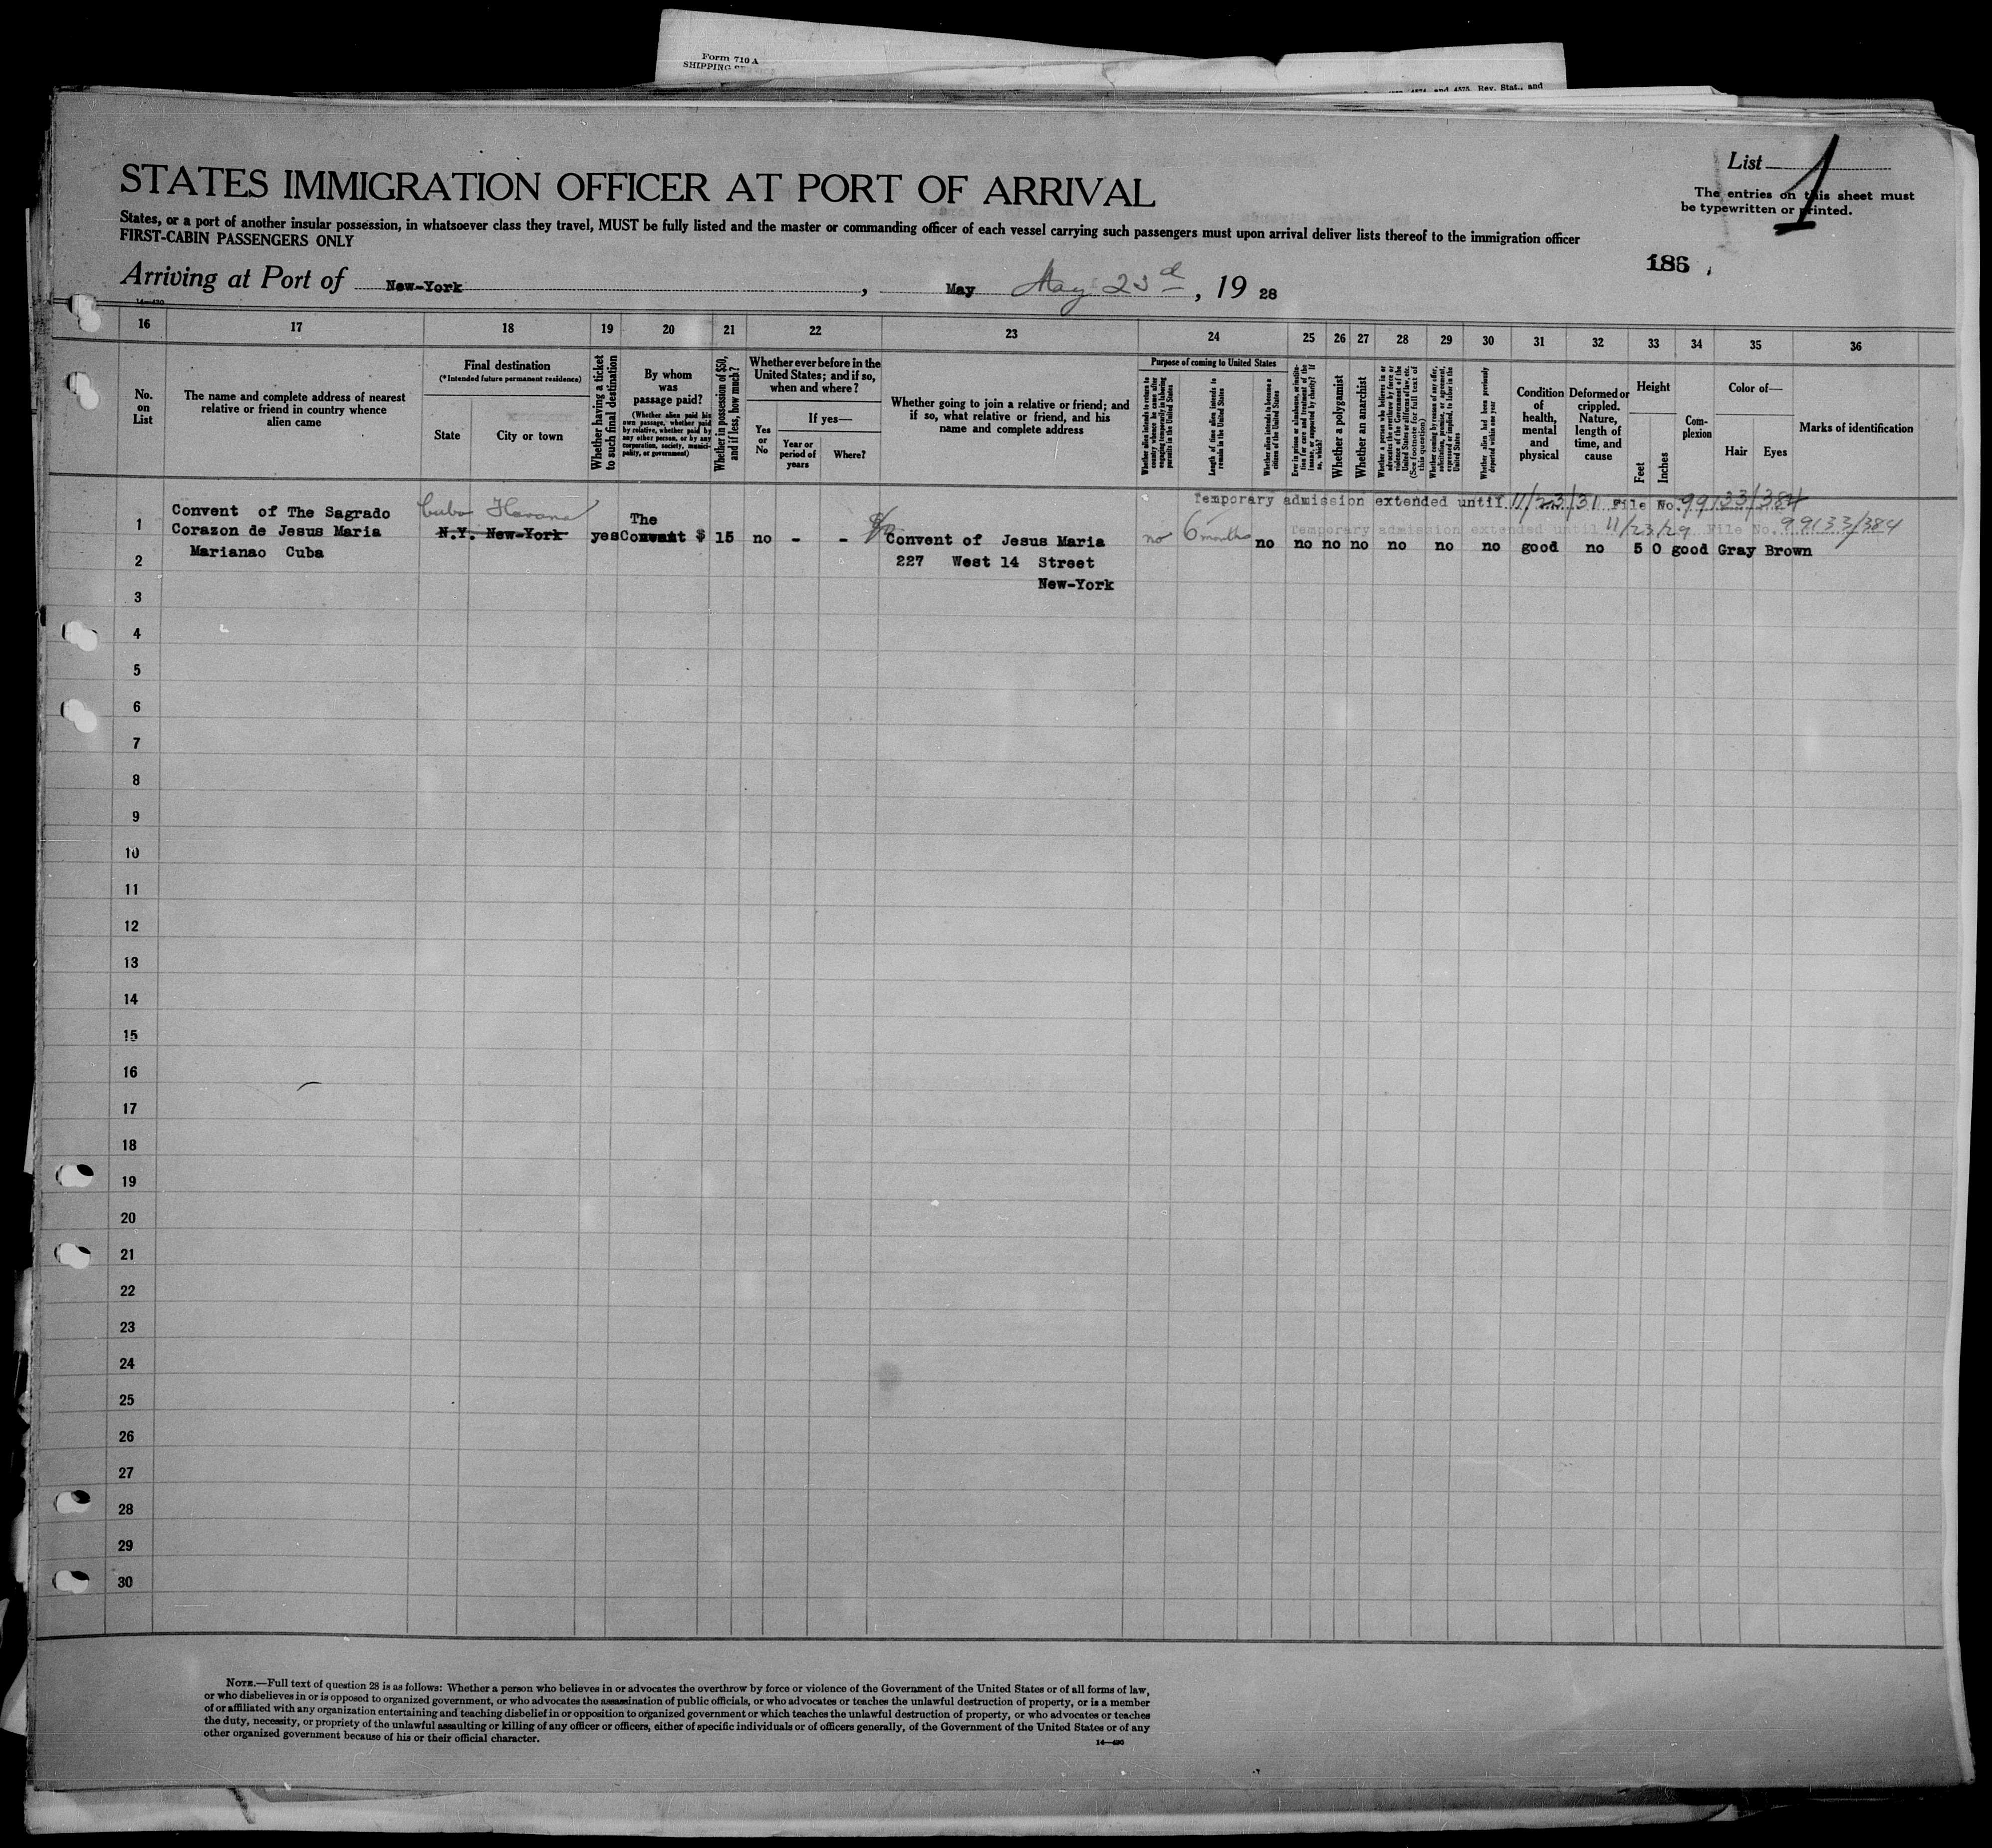 Form 710 A
SHIPPING
4574 and 4575, Rev. Stat., and
List 1
The entries on this sheet must
be typewritten or printed.
STATES IMMIGRATION OFFICER AT PORT OF ARRIVAL
States, or a port of another insular possession, in whatsoever class they travel, MUST be fully listed and the master or commanding officer of each vessel carrying such passengers must upon arrival deliver lists thereof to the immigration officer
FIRST-CABIN PASSENGERS ONLY
186
Arriving at Port of New-York, May May 23d, 19 28
14—430
16 17 18 19 20 21 22 23 24 25 26 27 28 29 30 31 32 33 34 35 36
No.
on
List
The name and complete address of nearest
relative or friend in country whence
alien came
Final destination
(*Intended future permanent residence)
State
City or town
Whether having a ticket
to such final destination
By whom
was
passage paid?
(Whether alien paid his
own passage, whether paid
by relative, whether paid by
any other person, or by any
corporation, society, munici-
pality, or government)
Whether in possession of $50,
and if less, how much?
Whether ever before in the
United States; and if so,
when and where?
Yes
or
No
If yes—
Year or
period of
years
Where?
Whether going to join a relative or friend; and
if so, what relative or friend, and his
name and complete address
Purpose of coming to United States
Whether alien intends to return to
country whence he came after
engaging temporarily in laboring
pursuits in the United States
Length of time alien intends to
remain in the United States
Whether alien intends to become a
citizen of the United States
Ever in prison or almshouse, or institu-
tion for care and treatment of the
insane, or supported by charity? If
so, which?
Whether a polygamist
Whether an anarchist
Whether a person who believes in or
advocates the overthrow by force or
violence of the Government of the
United States or all forms of law, etc.
(See footnote for full text of
this question)
Whether coming by reason of any offer,
solicitation, promise, or agreement,
expressed or implied, to labor in the
United States
Whether alien had been previously
deported within one year
Condition
of
health,
mental
and
physical
Deformed or
crippled.
Nature,
length of
time, and
cause
Height
Feet
Inches
Com-
plexion
Color of—
Hair
Eyes
Marks of identification
Temporary admission extended until 11/23/31 File No. 99133/384
Temporary admission extended until 11/23/29 File No. 99133/384
1
Convent of The Sagrado
Corazon de Jesus Maria
Marianao Cuba
Cuba Havana
N.Y. New-York
yes
The
Convent
$ 15
no - -
Convent of Jesus Maria
227 West 14 Street
New-York
no 6 months no no no no no no no good no 5 0 good Gray Brown
2
3
4
5
6
7
8
9
10
11
12
13
14
15
16
17
18
19
20
21
22
23
24
25
26
27
28
29
30
NOTE.—Full text of question 28 is as follows: Whether a person who believes in or advocates the overthrow by force or violence of the Government of the United States or of all forms of law,
or who disbelieves in or is opposed to organized government, or who advocates the assassination of public officials, or who advocates or teaches the unlawful destruction of property, or is a member
of or affiliated with any organization entertaining and teaching disbelief in or opposition to organized government or which teaches the unlawful destruction of property, or who advocates or teaches
the duty, necessity, or propriety of the unlawful assaulting or killing of any officer or officers, either of specific individuals or of officers generally, of the Government of the United States or of any
other organized government because of his or their official character.
14—430